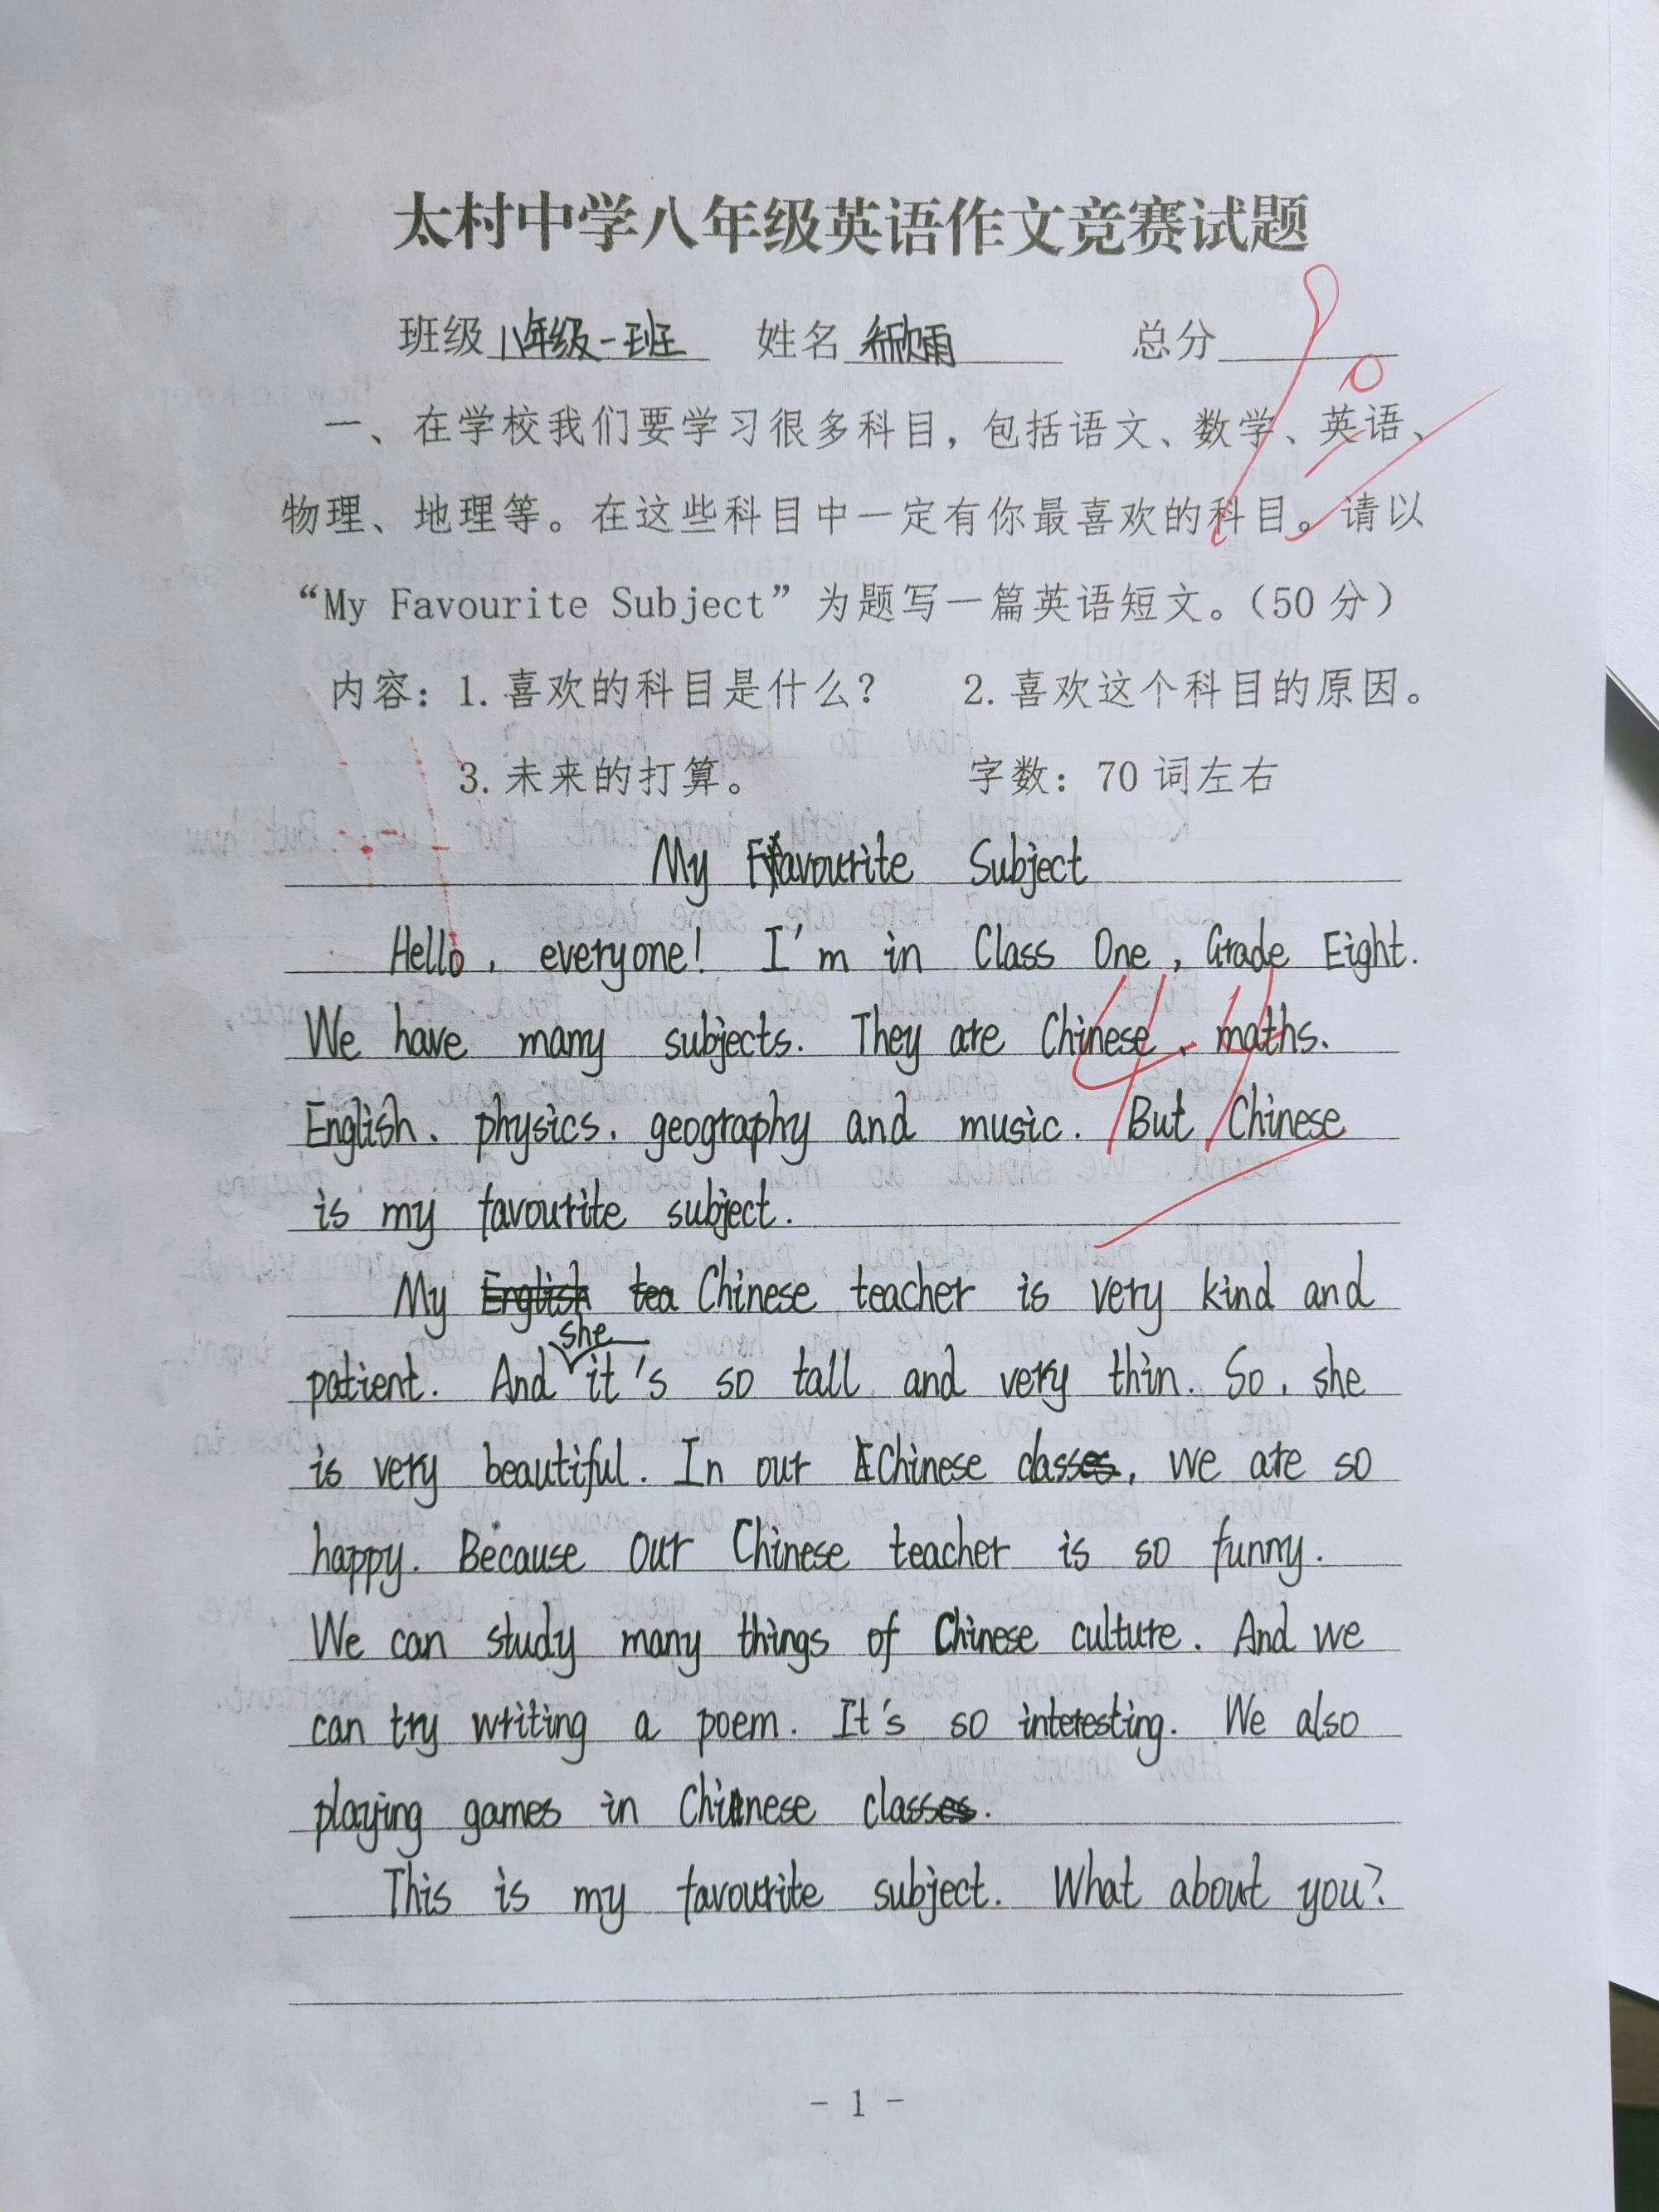 太村中学八年级英语作文竞赛试题
班级 八年级一班 姓名 欣雨 总分 90
一、在学校我们要学习很多科目，包括语文、数学、英语、
物理、地理等。在这些科目中一定有你最喜欢的科目。请以
“My Favourite Subject”为题写一篇英语短文。（50分）
内容：1.喜欢的科目是什么？ 2.喜欢这个科目的原因。
3.未来的打算。 字数：70词左右
My Favourite Subject
Hello, everyone! I'm in Class One, Grade Eight.
We have many subjects. They are Chinese、maths、
English、physics、geography and music. But Chinese
is my favourite subject.
My Chinese teacher is very kind and
patient. And she it's so tall and very thin. So, she
is very beautiful. In our Chinese class, we are so
happy. Because our Chinese teacher is so funny.
We can study many things of Chinese culture. And we
can try writing a poem. It's so interesting. We also
playing games in Chinese class.
This is my favourite subject. What about you?
- 1 -